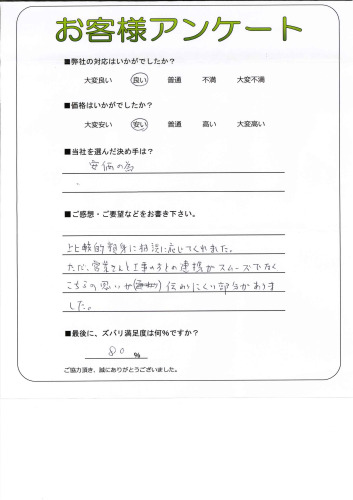 お客様アンケート
■弊社の対応はいかがでしたか？
大変良い 良い 普通 不満 大変不満
■価格はいかがでしたか？
大変安い 安い 普通 高い 大変高い
■当社を選んだ決め手は？
安価の為
■ご感想・ご要望などをお書き下さい。
比較的親身に相談に応じてくれました。
ただ、営業さんと工事の方との連携がスムーズでなく
こちらの思いが 伝わりにくい部分がありま
した。
■最後に、ズバリ満足度は何％ですか？
80 ％
ご協力頂き、誠にありがとうございました。